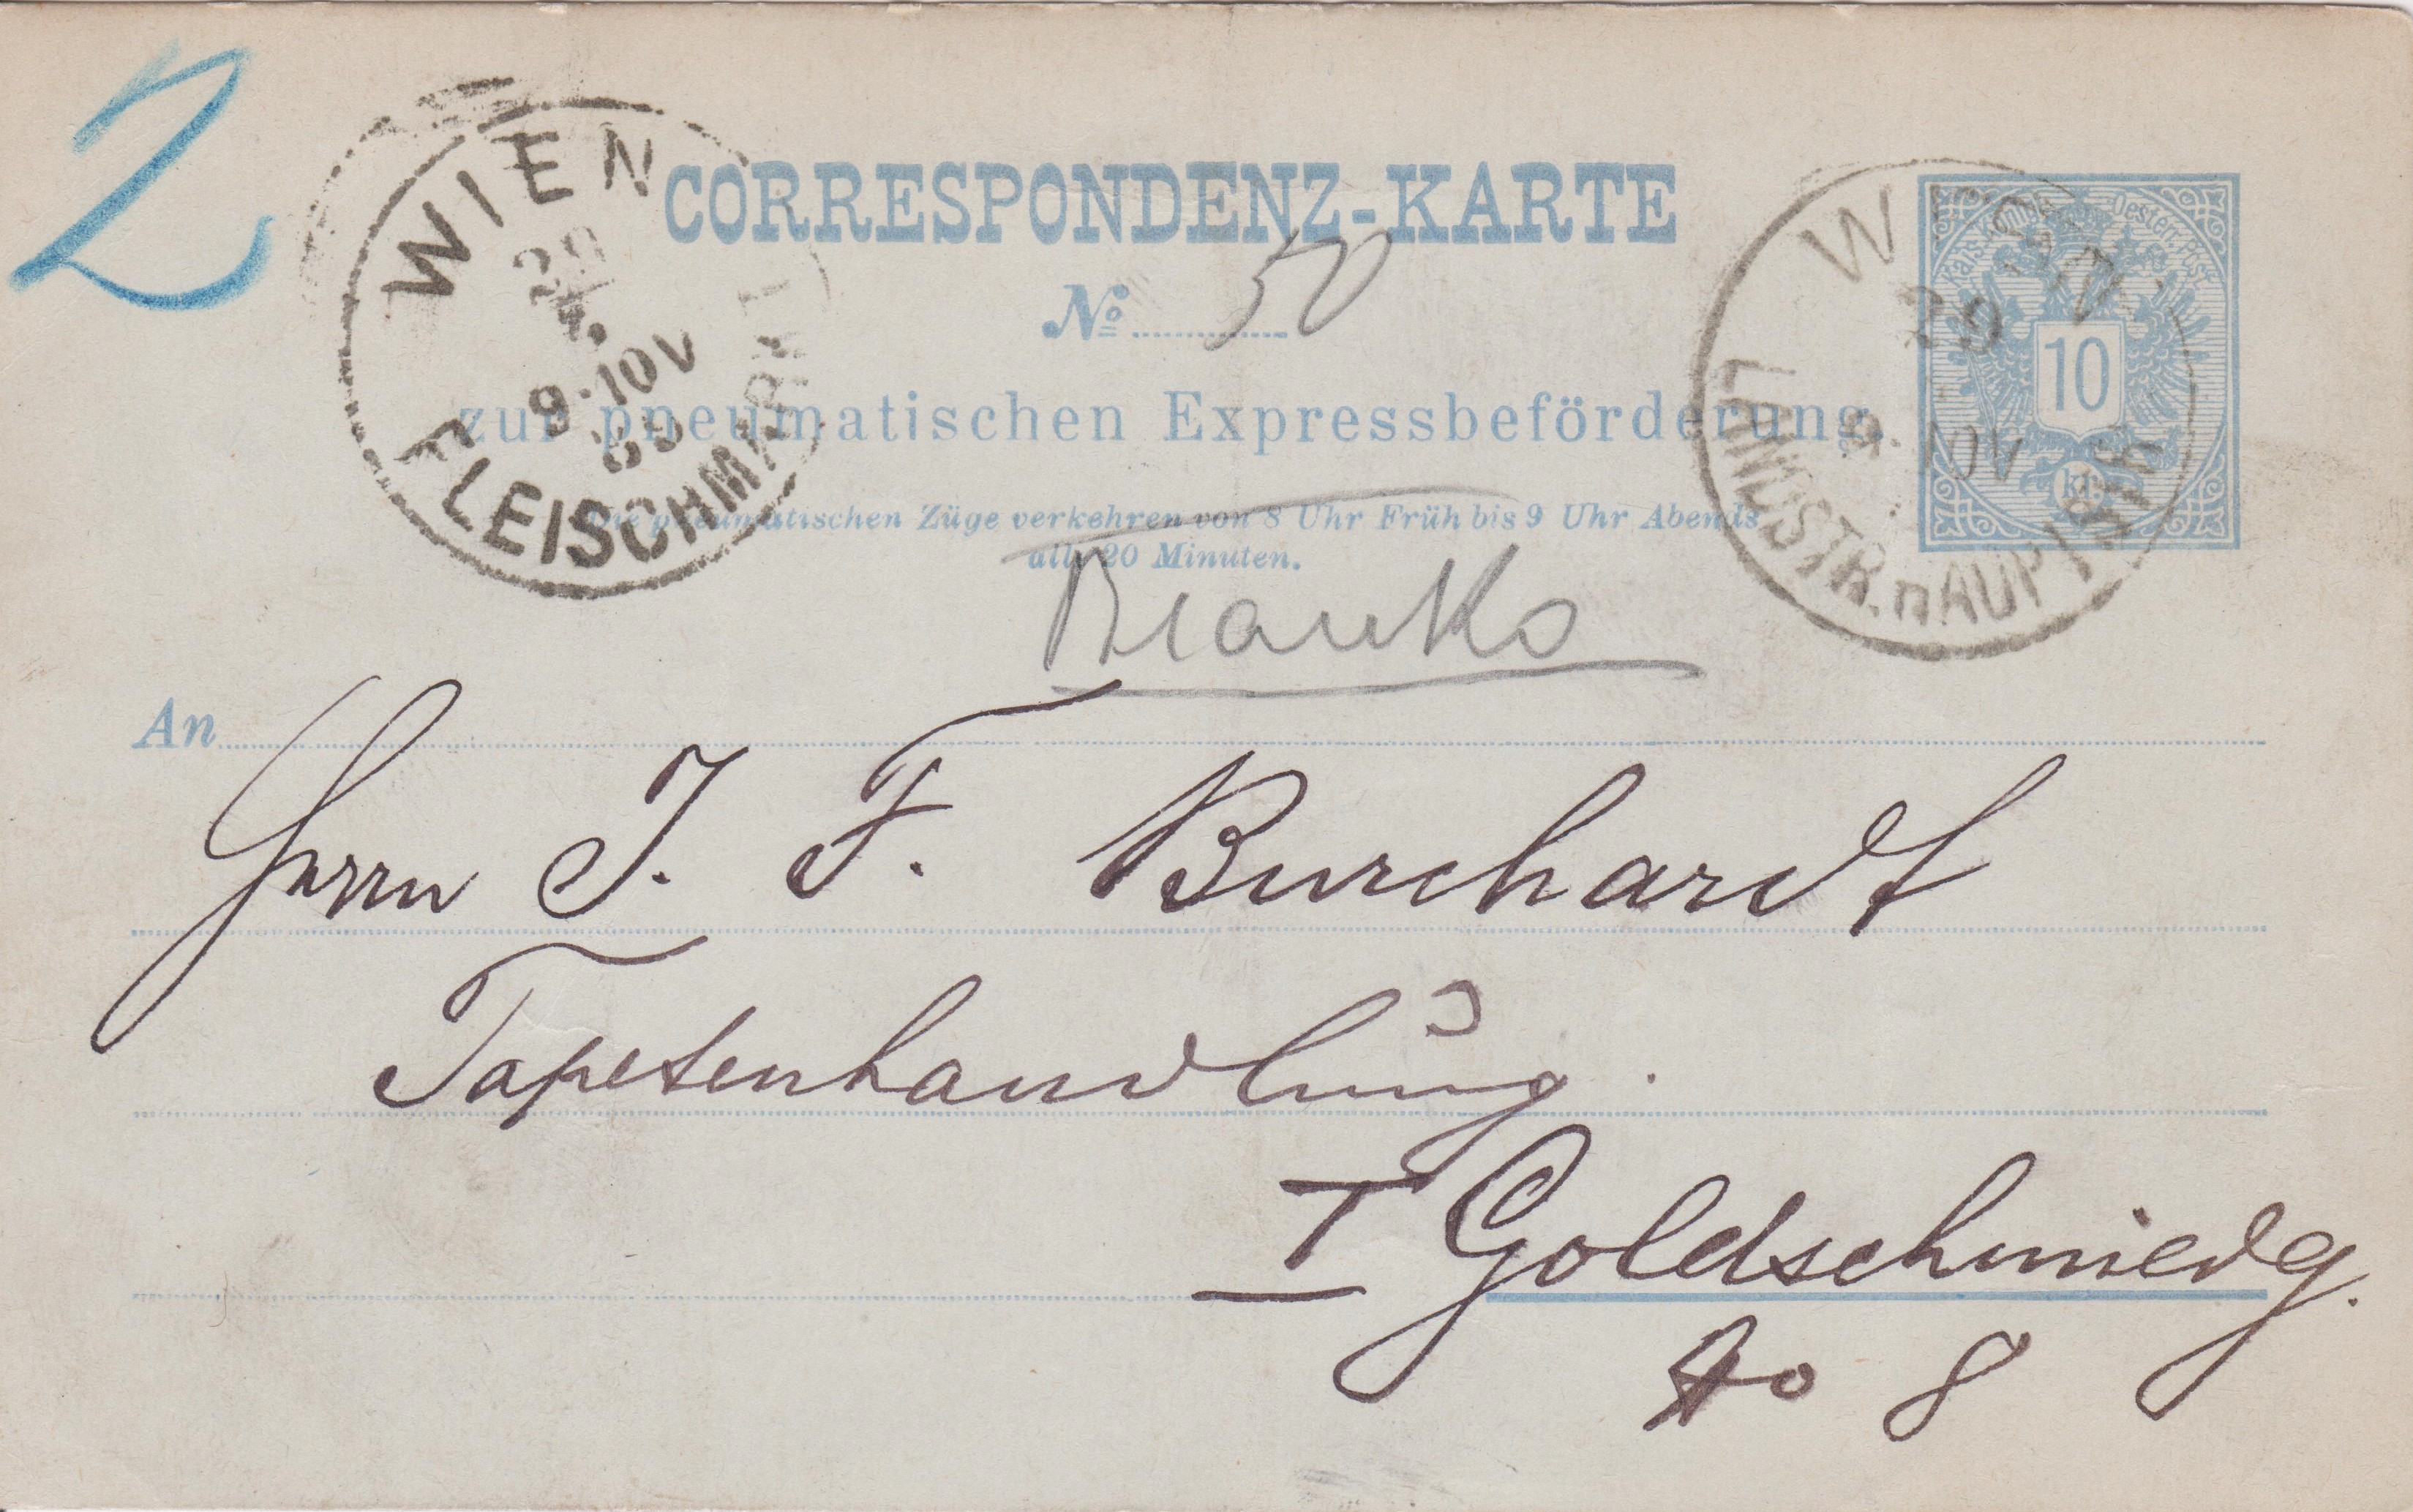 2
WIEN
9·10V
89
FLEISCHMARKT
CORRESPONDENZ-KARTE
No 50
zur pneumatischen Expressbeförderung.
Die pneumatischen Züge verkehren von 8 Uhr Früh bis 9 Uhr Abends
alle 20 Minuten.
Kais. Königl. Oesterr. Post
10
kr.
LANDSTR. HAUPTSTR.
Franko
An
Herrn J. F. Burchardt
Tapetenhandlung.
I Goldschmiedg.
No 8